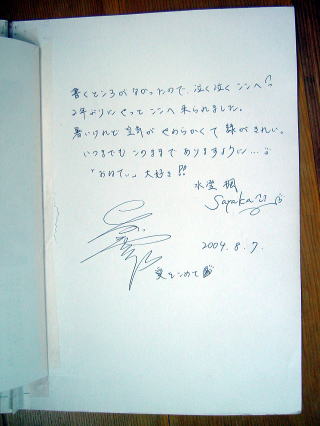 書くところがなかったので、泣く泣くここへ!?
2年ぶりにやっとここへ来られました。
暑いけれど空気がやわらかくて緑がきれい。
いつまでもこのままでありますように…。
「おねてぃ」大好き!!
水雪 楓
Sayaka
2004.8.7.
愛をこめて